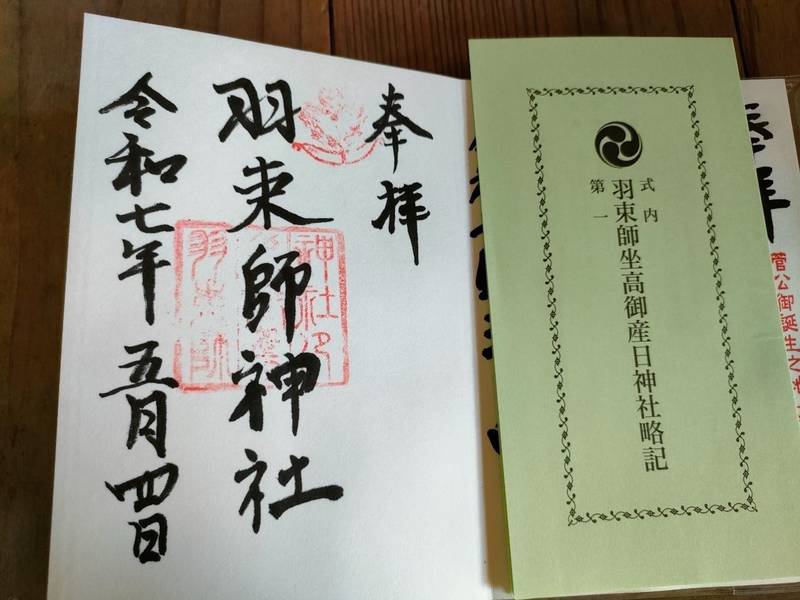 奉拝
羽束師神社
令和七年五月四日
式内
第一
羽束師坐高御産日神社略記
奉拝
菅公御誕生之